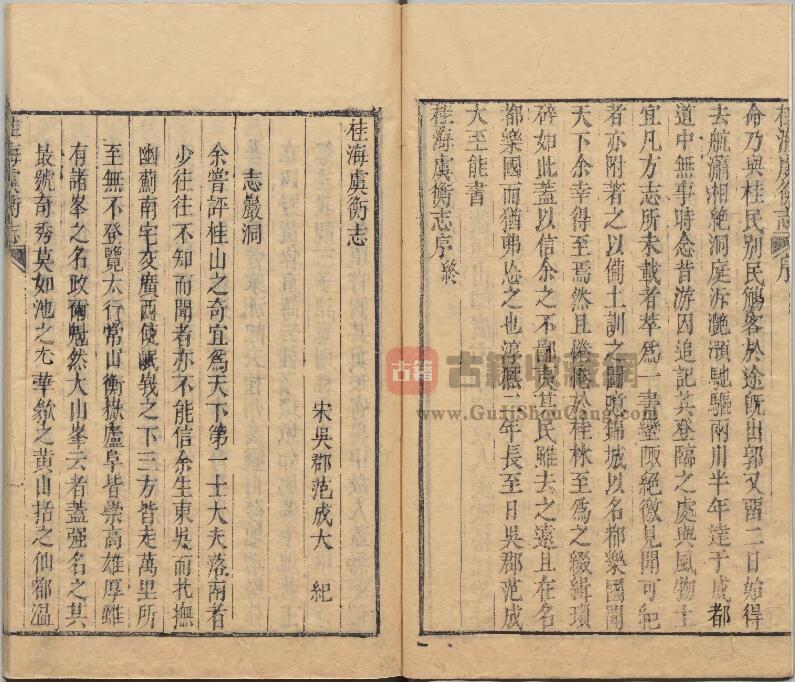 桂海虞衡志 序
命乃與桂民別民觴客於途既出郭又留二日始得
去航瀟湘絕洞庭泝灩澦馳驅兩川半年達于成都
道中無事時念昔游因追記其登臨之處與風物土
宜凡方志所未載者萃爲一書蠻陬絕徼見聞可紀
者亦附著之以備土訓之圖噫錦城以名都樂國聞
天下余幸得至焉然且惓惓於桂林至爲之綴緝瑣
碎如此蓋以信余之不鄙夷其民雖去之遠且在名
都樂國而猶弗忘之也淳熙二年長至日吳郡范成
大至能書
桂海虞衡志序終
桂海虞衡志
宋吳郡范成大 紀
志巖洞
余嘗評桂山之奇宜爲天下第一士大夫落南者
少往往不知而聞者亦不能信余生東吳而北撫
幽薊南宅交廣西使岷峩之下三方皆走萬里所
至無不登覽太行常山衡嶽廬阜皆崇高雄厚雖
有諸峯之名政爾魁然大山峯云者蓋强名之其
最號奇秀莫如池之九華歙之黄山括之仙都温
桂海虞衡志
古籍
古籍收藏網
www.GujiShouCang.com